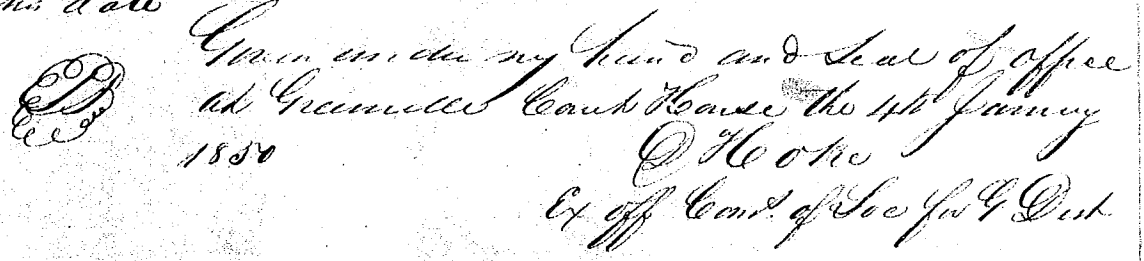 this date
Given under my hand and Seal of office
at Greenville Court House the 4th January
1850 D Hoke
Ex off Com. of Loc for G Dist